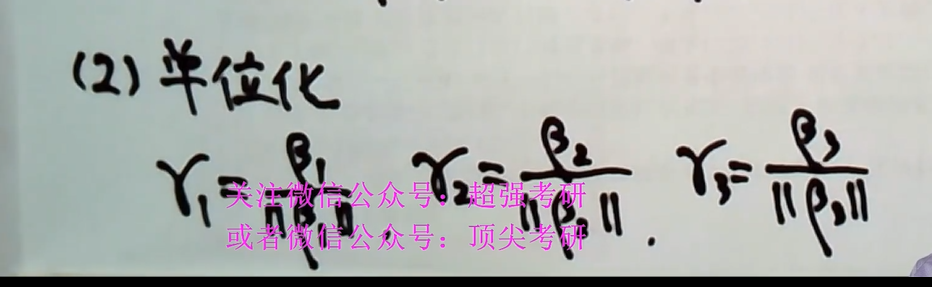 (2) 单位化
γ₁ = β₁/||β₁||, γ₂ = β₂/||β₂||. γ₃ = β₃/||β₃||
关注微信公众号：超强考研
或者微信公众号：顶尖考研